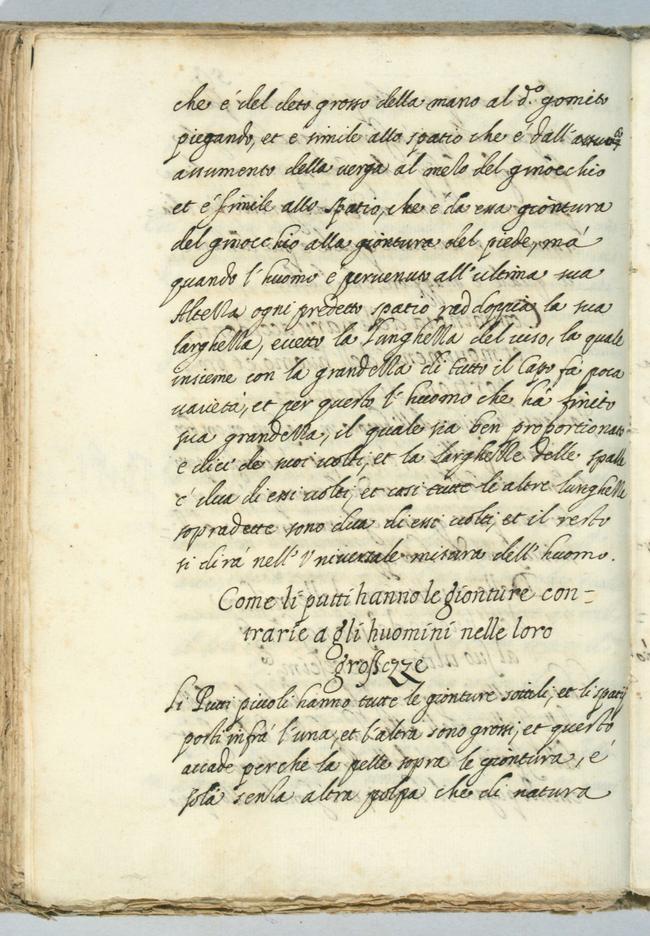 che é del deto grosso della mano al d.º gomito
piegando, et e simile allo spatio che é dall'
assumento della verga al melo del ginocchio
et é simile allo spatio, che é da essa giontura
del ginocchio alla giontura del piede, má
quando l'huomo é pervenuto all'ultima sua
Altezza ogni predetto spatio raddoppia la sua
larghezza, eccetto la lunghezza del viso, la quale
insieme con la grandezza di tutto il Capo fá poca
varietá, et per questo l'huomo che há finito
sua grandezza, il quale sia ben proportionato
e dieci de suoi volti, et la larghezze delle spalle
é dua di essi volti, et cosi tutte li altre lunghezze
sopradette sono dua di essi volti, et il resto
si dirá nell'Universale misura dell'huomo.
Come li putti hanno le gionture con=
trarie a gli huomini nelle loro
grossezze
Li Putti piccoli hanno tutte le gionture sottili, et li spatij
posti infrá l'una, et l'altra sono grossi, et questo
accade perche la pelle sopra le giontura, é
sola senza altra polpa che di natura